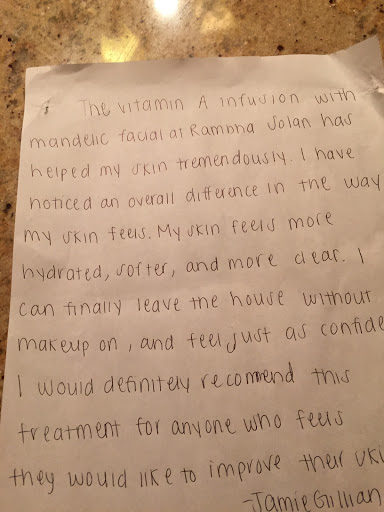 The vitamin A infusion with
mandelic facial at Rambha Solan has
helped my skin tremendously. I have
noticed an overall difference in the way
my skin feels. My skin feels more
hydrated, softer, and more clear. I
can finally leave the house without
makeup on, and feel just as confide
I would definitely recommend this
treatment for anyone who feels
they would like to improve their ski
-Jamie Gillian